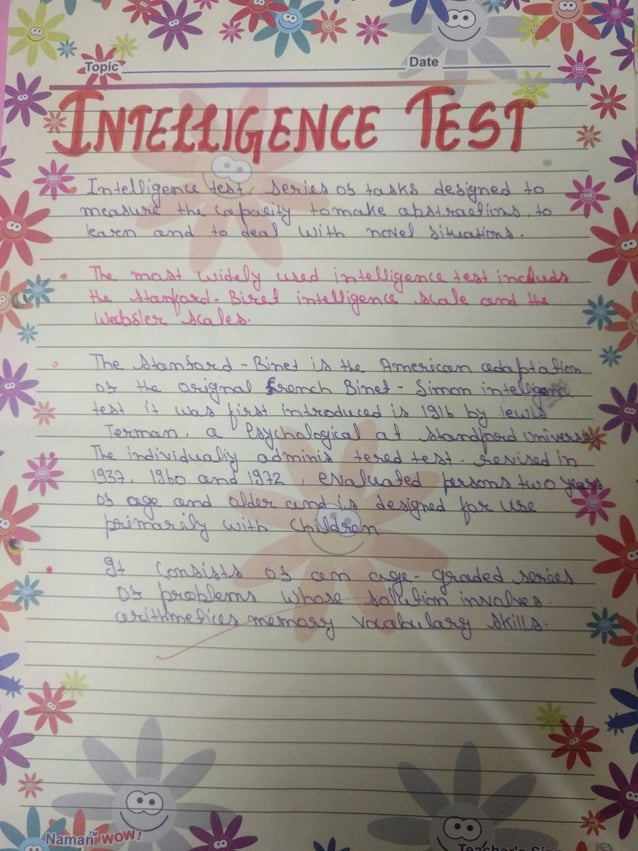 Topic
Date
INTELLIGENCE TEST
Intelligence test, series of tasks designed to
measure the capacity to make abstractions, to
learn and to deal with novel situations.
The most widely used intelligence test includs
the Stanford-Binet intelligence scale and the
Webster scales.
The Stanford-Binet is the American adaptation
of the orignal French Binet-Simon intelligence
test it was first introduced is 1916 by lewis
Terman, a Psychological at Standford University
The individualiy adminis tered test. revised in
1937, 1960 and 1972, evaluated persons two years
of age and older and is designed for use
primarily with children
It Consists of an age-graded series
Of problems whose solution involves.
arithmetics memory vocabulary skills.
Naman™ WOW!